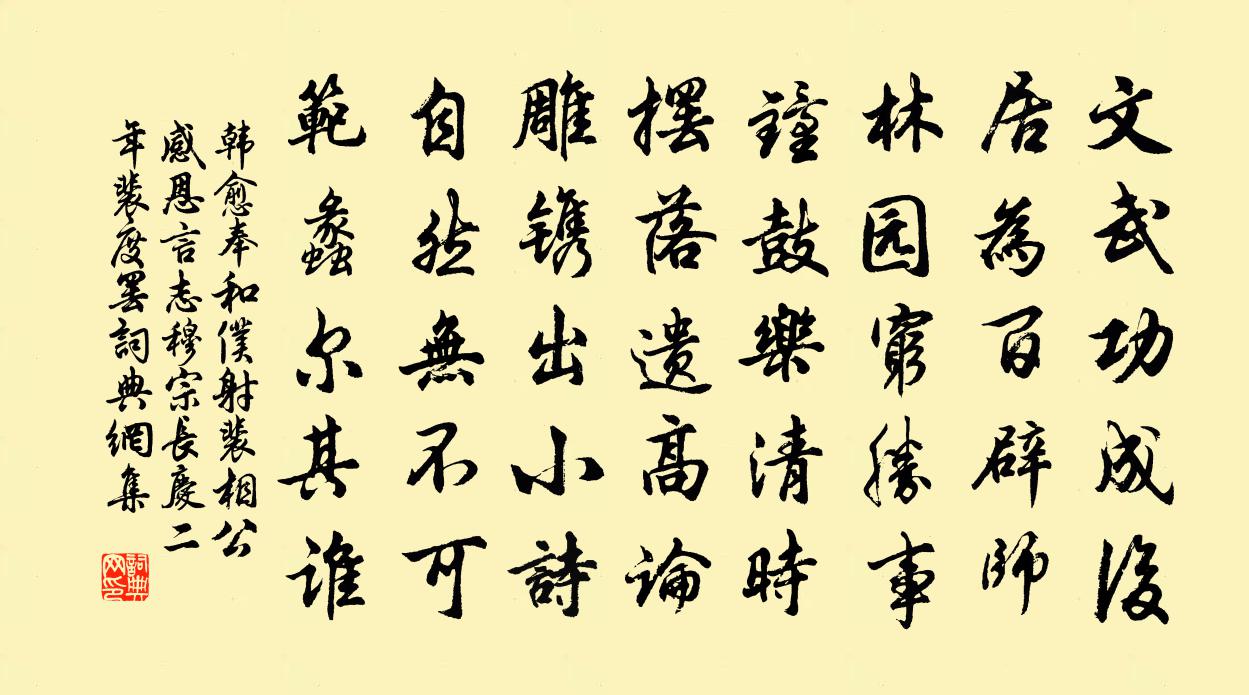 文武功成後
居為百辟師
林园窮勝事
鐘鼓樂清時
擺落遗高論
雕镌出小詩
自然無不可
範蠡尔其誰
韩愈奉和僕射裴相公
感恩言志穆宗長慶二
年裴度罢詞典網集
詞典网印